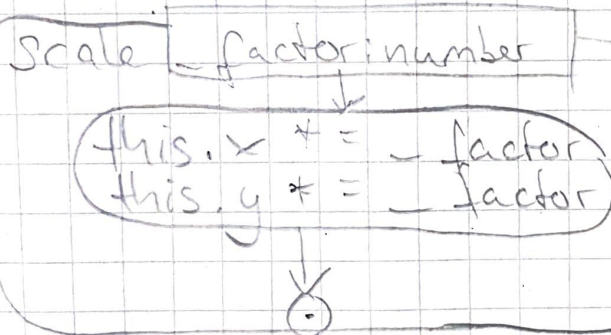 scale _factor:number
this.x *= _factor
this.y *= _factor